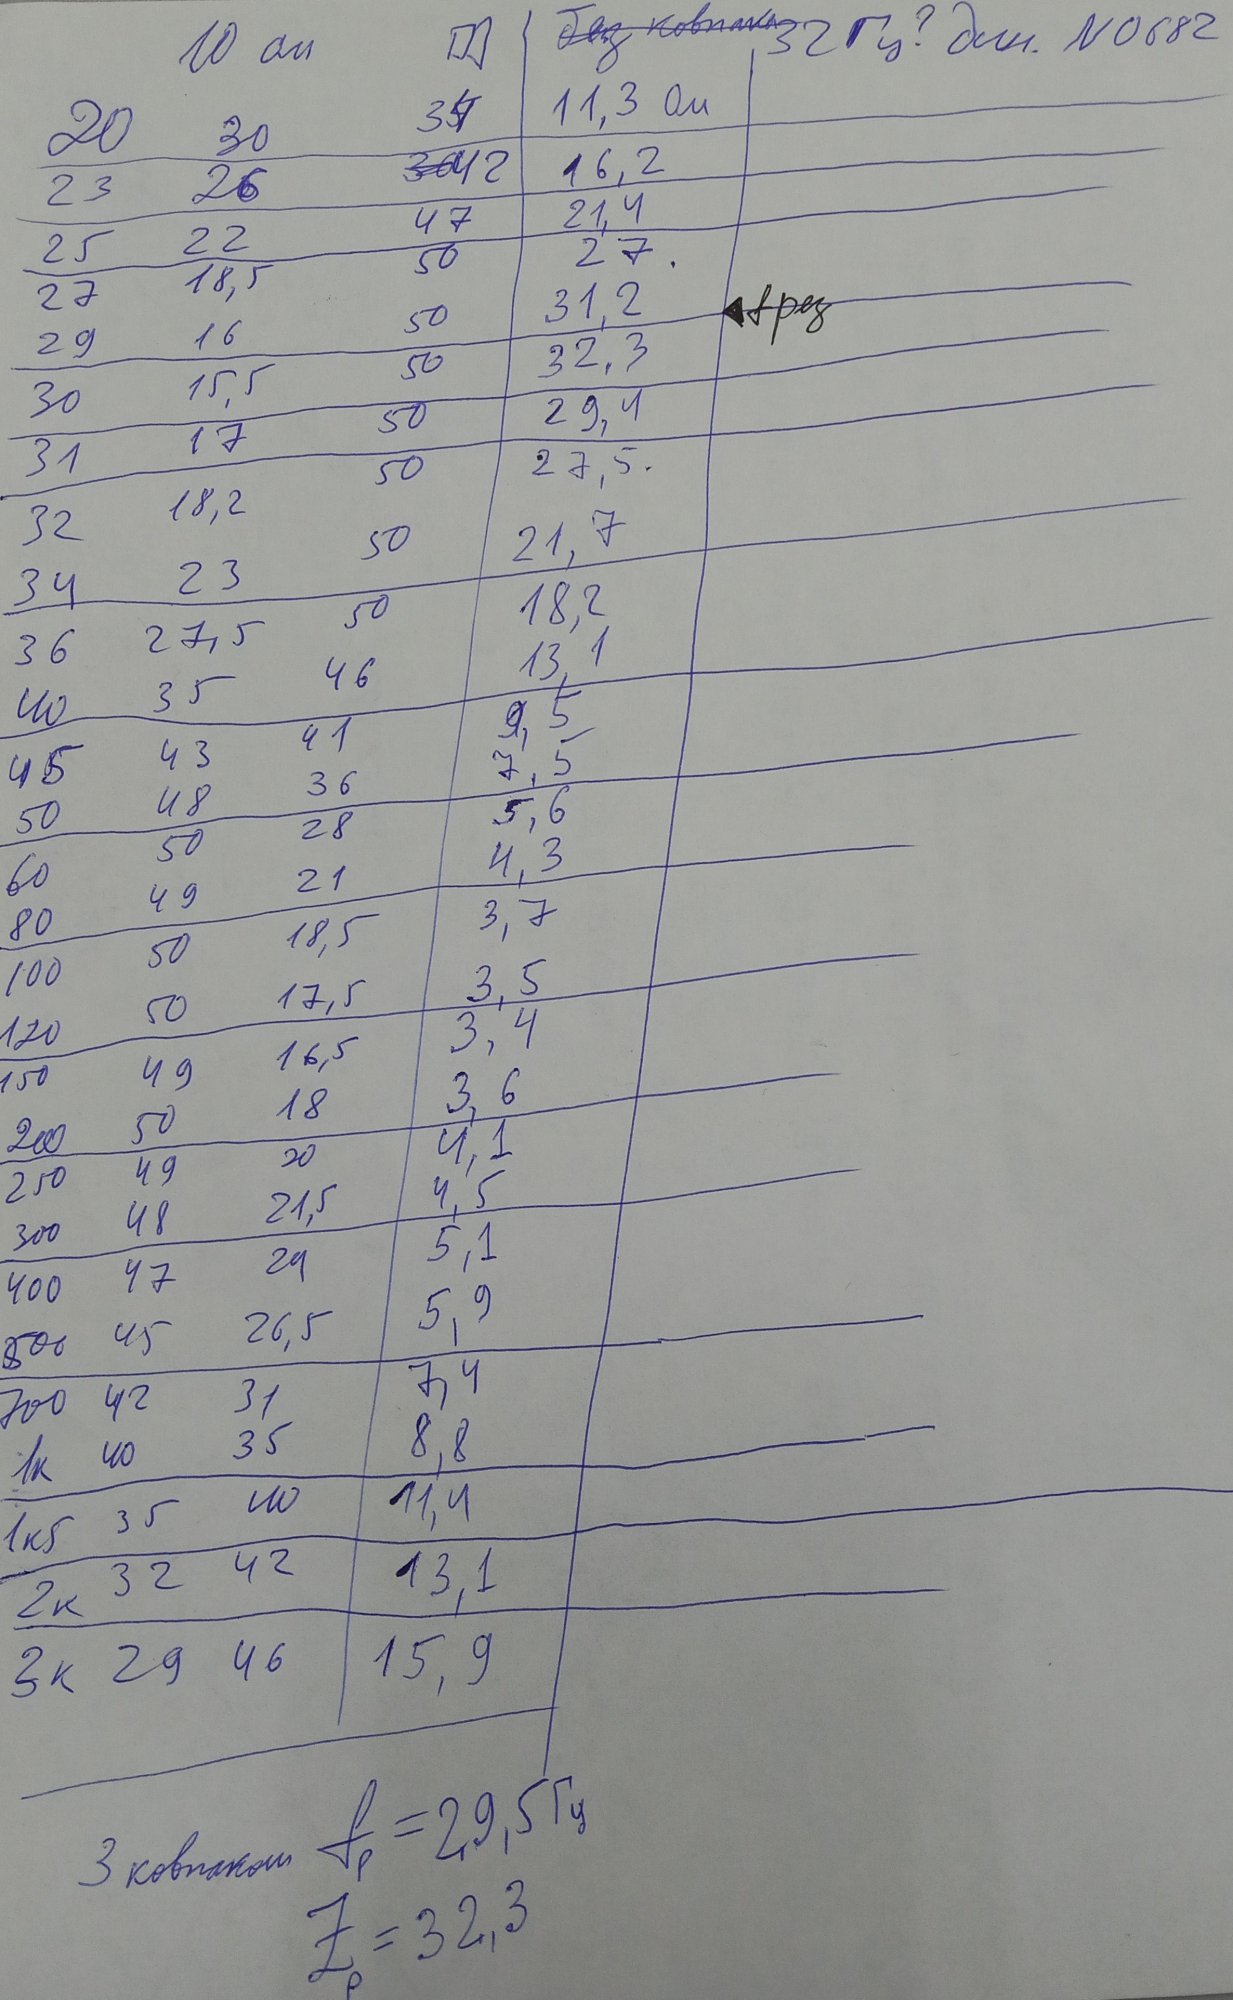 10 ом 32 Гц? дин. N0682
20 30 34 11,3 Ом
23 26 42 16,2
25 22 47 21,4
27 18,5 50 27.
29 16 50 31,2 f рез
30 15,5 50 32,3
31 17 50 29,4
32 18,2 50 27,5.
34 23 50 21,7
36 27,5 50 18,2
40 35 46 13,1
45 43 41 9,5
50 48 36 7,5
60 50 28 5,6
80 49 21 4,3
100 50 18,5 3,7
120 50 17,5 3,5
150 49 16,5 3,4
200 50 18 3,6
250 49 20 4,1
300 48 21,5 4,5
400 47 24 5,1
500 45 26,5 5,9
700 42 31 7,4
1к 40 35 8,8
1к5 35 40 11,4
2к 32 42 13,1
3к 29 46 15,9
З ковпаком fр = 29,5 Гц
Zр = 32,3